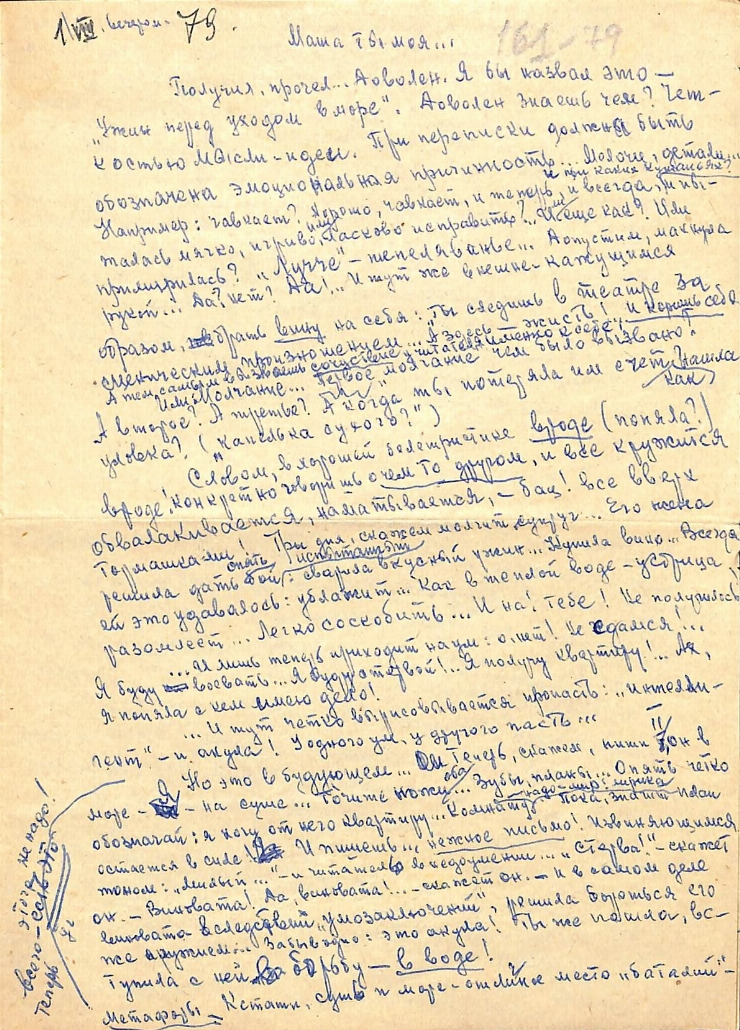 1/VIII. вечером. 79.
161-79
Маша ты моя...
Получил, прочел... Доволен. Я бы назвал это —
"Ужин перед уходом в море". Доволен знаешь чем? Чет-
костью мысли-идеи. При переписки должна быть
обозначена эмоциональная причинность... Мелочи, детали...
и при каких кушаньях?
Например: чавкает? Хорошо, чавкает, и теперь, и всегда, и пы-
талась мягко, игриво, ласково исправить? Или еще как? Или
примирилась? "Лучче" - пепеляванье... Допустим, махнула
рукой... Да? Нет? Да!.. И тут же внешне-кажущимся
образом, брать вину на себя: Ты следишь в театре за
сценическим произношением... А здесь жисть! и коришь себя
А тем самым вызываешь сочувствие читателя именно к себе!
Или: Молчание... Первое молчание чем было вызвано?
А второе? А третье? А когда ты потеряла им счет? нашла
как
уловка? ("Капелька сухого?")
Словом, в хорошей беллетристике вроде (поняла?)
вроде! конкретно говоришь о чем то другом, и все кружится
обвалакивается, наматывается, - бац! все вверх
тормашками! Три дня, скажем молчит супруг... Его жена
опять испытанный
решила дать бой: сварила вкусный ужин... Купила вино... Всегда
ей это удавалось: ублажит... Как в теплой воде - устрица,
разомлеет... Легко соскобить... И на! тебе! Не получилось
...И лишь теперь приходит на ум: о, нет! Не сдамся!..
Я буду воевать... Я буду стервой!.. Я получу квартиру!.. Ах,
я поняла с кем имею дело!
...И тут четко вырисовывается пропасть: "интелли-
гент" - и акула! У одного ум, у другого пасть...
Но это в будующем... Теперь, скажем, ниши II он в
море - я - на суше... Точите ножи оба... Зубы, планы... Опять четко
обозначай: я хочу от него квартиру... Комнату пока, значит план
остается в силе! И пишешь... нежное письмо! Извиняющимся
тоном: "Милый..." - и читатель в недоумении... "Стерва!" - скажет
он. - Виновата! Да, виновата!.. - скажет он. - И в самом деле
виновата вследствии "умозаключений", решила бороться его
же оружием... Забыв одно: это акула! Ты же пошла, вс-
тупила с ней в борьбу - в воде!
Метафоры - Кстати, суша и море - отличное место "баталий" -
этого не надо!
всего - само это
Теперь